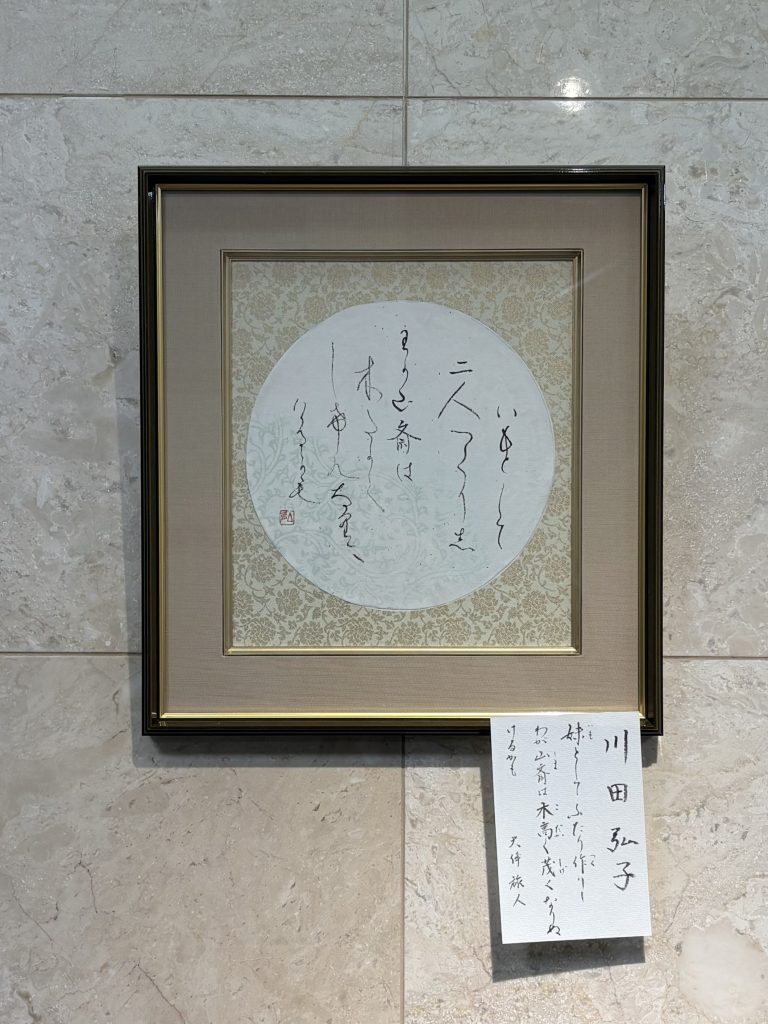 いもとして
二人つくり志
わか山斎は
木たかく
し希久
川田弘子
妹としてふたり作りし
わが山斎は木高く茂くなりぬ
けるかも
大伴旅人